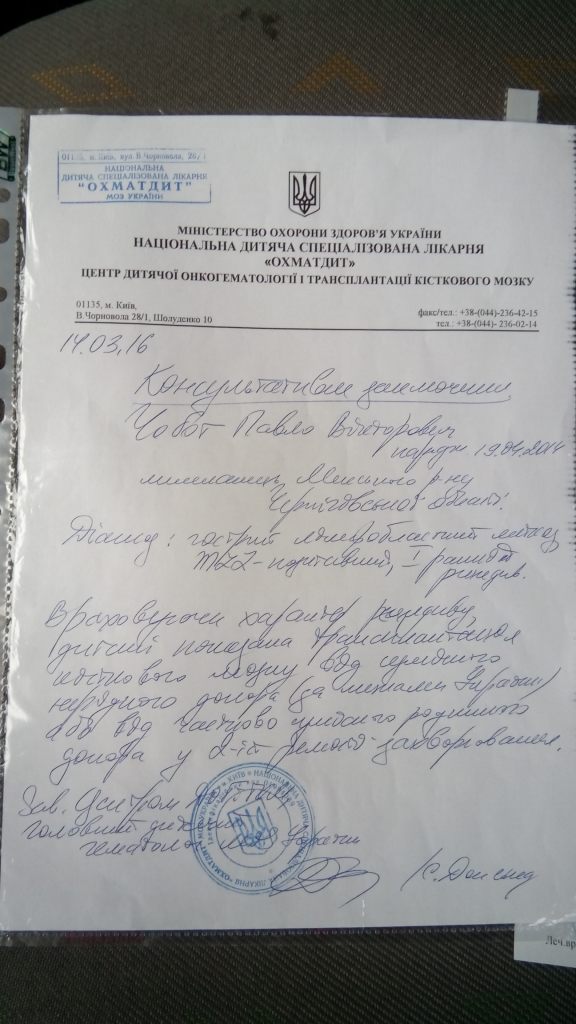 01135, м. Київ, вул. В.Чорновола, 28/1
НАЦІОНАЛЬНА
ДИТЯЧА СПЕЦІАЛІЗОВАНА ЛІКАРНЯ
"ОХМАТДИТ"
МОЗ УКРАЇНИ
МІНІСТЕРСТВО ОХОРОНИ ЗДОРОВ'Я УКРАЇНИ
НАЦІОНАЛЬНА ДИТЯЧА СПЕЦІАЛІЗОВАНА ЛІКАРНЯ
«ОХМАТДИТ»
ЦЕНТР ДИТЯЧОЇ ОНКОГЕМАТОЛОГІЇ І ТРАНСПЛАНТАЦІЇ КІСТКОВОГО МОЗКУ
01135, м. Київ,
В.Чорновола 28/1, Шолуденко 10
факс/тел.: +38-(044)-236-42-15
тел.: +38-(044)- 236-02-14
14.03.16
Консультативне заключення
Чобот Павло Вікторович
народж 19.04.2014
мешканець Менського р-ну
Чернігівської області.
Діагноз: гострий лімфобластний лейкоз
MLL-позитивний, I ранній
рецидив.
Враховуючи характер рецидиву,
дитині показана трансплантація
кісткового мозку від
нерідного донора (за межами України)
або від частково сумісного родинного
донора у 2-ій ремісії захворювання.
Зав. Центром
головний дитячий
гематолог України
Леч.вр